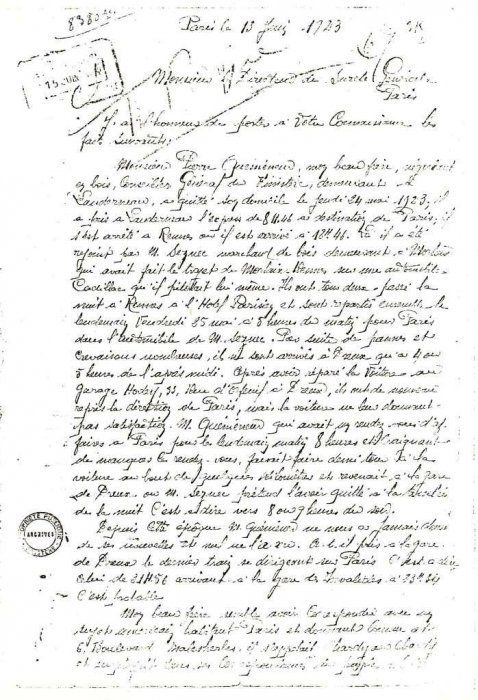 8380
Paris le 13 Juin 1923
15 JUIN
Monsieur le Directeur de Sureté Générale
Paris
J'ai l'honneur de porter à Votre Connaissance les
faits suivants:
Monsieur Pierre Quemeneur, mon beau frère, négociant
en bois, Conseiller Général du Finistère, demeurant à
Landerneau, a quitté son domicile le jeudi 24 mai 1923, il
a pris à Landerneau l'express de 8h46 à destination de Paris, il
s'est arrêté à Rennes où il est arrivé à 13h41. Là il a été
rejoint par M. Seznec marchand de bois demeurant à Morlaix
qui avait fait le trajet de Morlaix-Rennes sur une automobile
Cadillac qu'il pilotait lui même. Ils ont tous deux passé la
nuit à Rennes à l'Hotel Parisien et sont repartis ensemble le
lendemain Vendredi 25 mai à 5 heures de matin pour Paris
dans l'automobile de M. Seznec. Par suite de pannes et
crevaisons nombreuses, il ne sont arrivés à Dreux qu'à 4 ou
5 heures de l'après midi. Après avoir réparé la Voiture au
garage Hodey, 33, Rue d' à Dreux, ils ont de nouveau
repris la direction de Paris, mais la voiture ne leur donnant
pas satisfaction M. Quemeneur qui avait un rendez-vous d'af
faires à Paris pour le lendemain matin 8 heures et craignant
de manquer le rendez-vous, faisait faire demi tour à la
voiture au bout de quelques kilomètres et revenait à la gare
de Dreux où M. Seznec prétend l'avoir quitté à la tombée
de la nuit c'est à dire vers 8 ou 9 heures du soir.
Depuis cette époque M. Quemeneur ne nous a jamais donné
de ses nouvelles et nul ne l'a vu. A-t-il pris à la gare
de Dreux le dernier train se dirigeant sur Paris c'est à dire
celui de 21h56 arrivant à la gare des Invalides à
ARCHIVES
Mon beau frère semble avoir correspondu avec un
sujet américain habitant Paris et donnant comme
6, Boulevard Malesherbes, il s'appelait